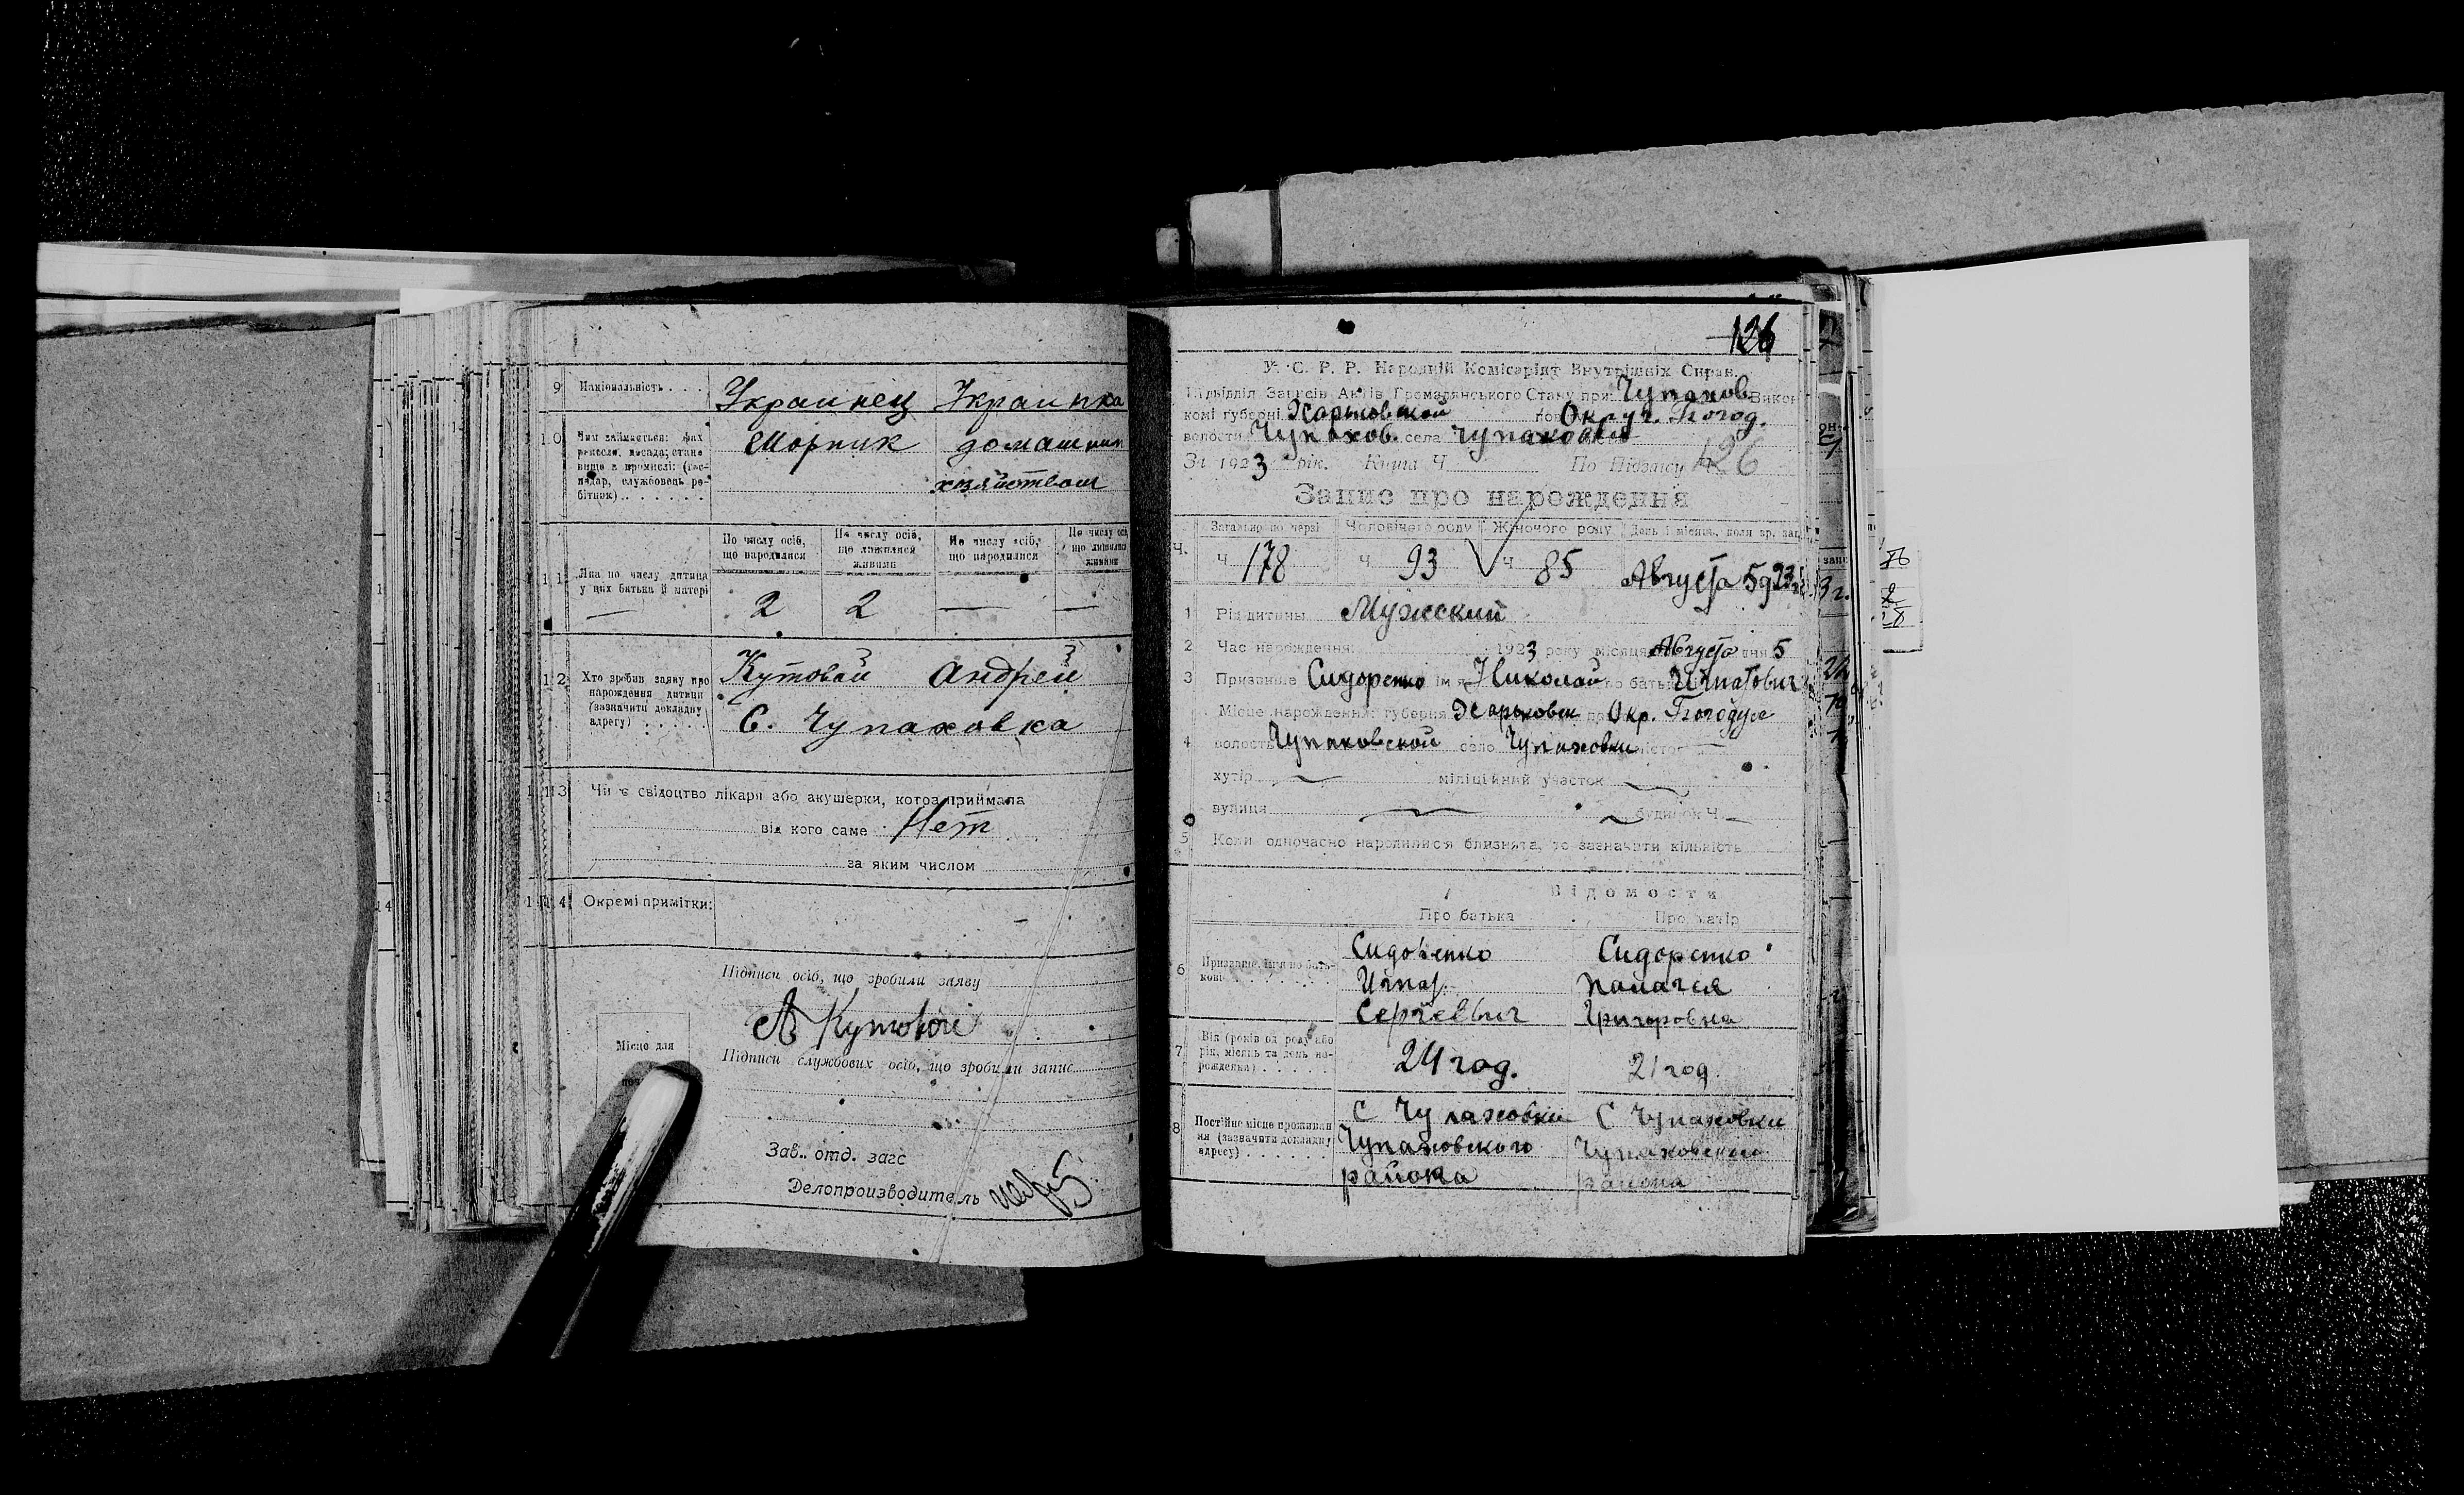 9 Національність . . . Украинец Украинка
10 Чим займається: фах Шорник домашним
ремесло, посада; стано-
вище в промислі: (гос-
подар, службовець ро- хозяйством
бітник) . . . . . .
По числу осіб, що народилися
По числу осіб, що лишилися живими
По числу осіб, що народилися
По числу що лишилися живими
11 Яка по числу дитина
у цих батька й матері
— 2 2 — —
12 Хто зробив заяву про Кутовой Андрей
нарождення дитини
(зазначити докладну С. Чупаховка
адресу) . . . .
13 Чи є свідоцтво лікаря або акушерки, котра приймала
від кого саме Нет
за яким числом
14 Окремі примітки: —
Підписи осіб, що зробили заяву
А Кутовой
Місце для
Підписи службових осіб, що зробили запис
Зав. отд. загс
Делопроизводитель
126
У. С. Р. Р. Народній Комісаріят Внутрішніх Справ.
Підвідділ Записів Актів Громадянського Стану при Чупахов Викон
комі губерні Харьковской пов Округ. Богод.
волости Чупахов. села Чупаховки
За 1923 рік. Книга Ч По Підпису 126
Запис про нарождення
Ч. Загально по черзі Чоловічого роду Жіночого роду День і місяць, коли зр. зап.
Ч 178 Ч 93 Ч 85 Августа 5 д 23
1 Рід дитини Мужской
2 Час нарождення: 1923 року місяця Августа дня 5
3 Призвище Сидоренко ім'я Николай по батьк Игнатович
Місце нарождення: губерня Харьковск пов Окр. Богодух
4 волость Чупаховской село Чупаховки місто —
хутір — міліційний участок —
вулиця — будинок Ч —
5 Коли одночасно народилися близнята, то зазначити кількість
Відомости
Про батька Про матір
Сидоренко Сидоренко
6 Призвище, ім'я по бать- Игнат.
кові . . . . . . Сергеевич Григоровна
7 Вік (років од роду або
рік, місяць та день на- 24 год. 21 год.
рождення) . . . . .
8 Постійне місце проживан С Чупаховки С Чупаховки
ня (зазначити докладну Чупаховского Чупаховского
адресу) . . . . . . района района